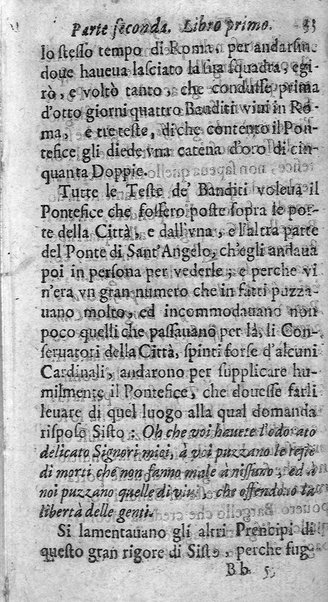 Parte seconda. Libro primo. 33
lo stesso tempo di Roma, per andarsin
doue haueua lasciato la sua squadra, e gi
rò, e voltò tanto, che condusse prima
d'otto giorni quattro Banditi viui in Ro
ma, e tre teste, di che contento il Pon
tefice gli diede vna catena d'oro di cin
quanta Doppie.
Tutte le Teste de' Banditi voleua il
Pontefice che fossero poste sopra le por
te della Città, e dall'vna, e l'altra parte
del Ponte di Sant'Angelo, ch'egli andaua
poi in persona per vederle; e perche vi
n'era vn gran numero che in fatti puzza
uano molto, ed incommodauano non
poco quelli che passauano per là, li Con
seruatori della Città, spinti forse d'alcuni
Cardinali, andarono per supplicare hu
milmente il Pontefice, che douesse farli
leuare di quel luogo alla qual domanda
rispose Sisto: Oh che voi hauete l'odorato
delicato Signori miei, a voi puzzano le teste
di morti che non fanno male a nissuno, ed a
noi puzzano quelle di viui, che offendono la
libertà delle genti.
Si lamentauano gli altri Prencipi di
questo gran rigore di Sisto, perche fug
Bb 5